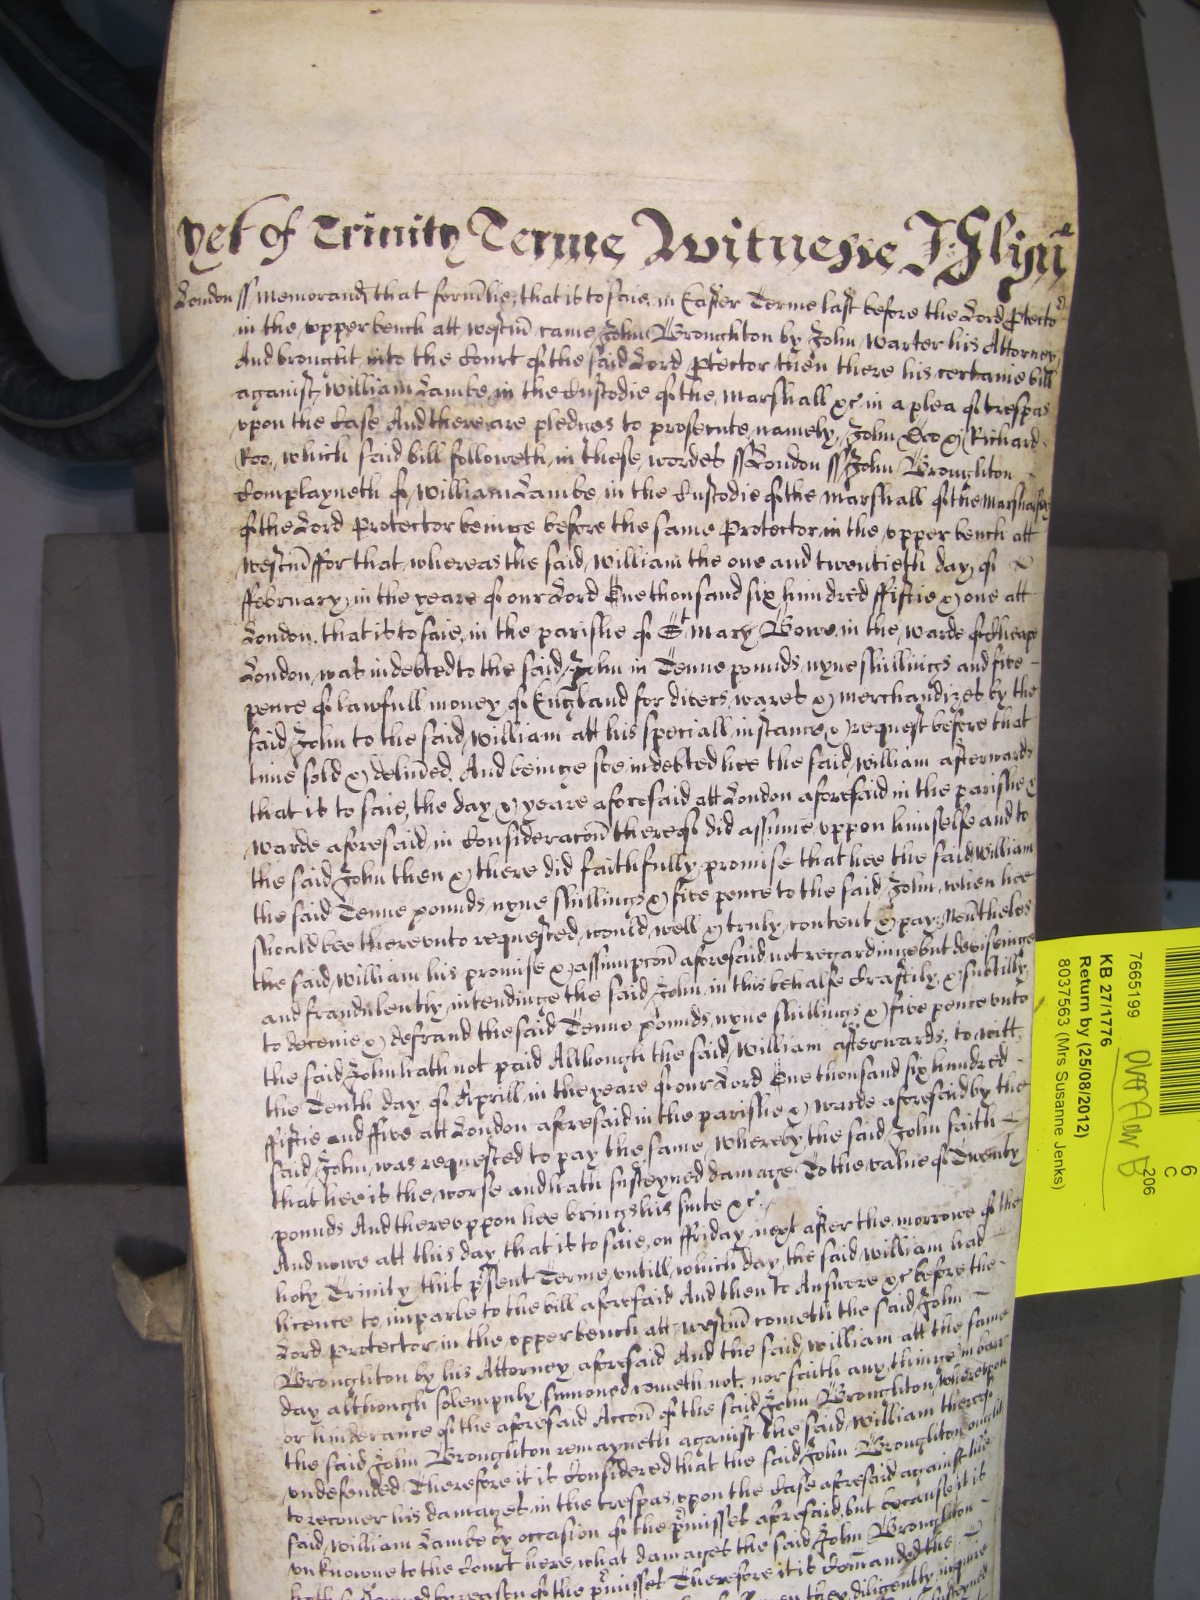 yet of Trinity Terme Witnesse J Glyn
London ss Memorand that formlie, that is to saie, in Easter Terme last before the Lord Protecto
in the upper bench att Westm came John Broughton by John Warter his Attorney
And brought into the Court of the said Lord Protector then there his certaine bill
against William Lambe in the Custodie of the Marshall &c in a plea of trespas
upon the Case And there are pledges to prosecute, namely, John Doo & Richard
Roo, which said bill followeth, in these wordes ss London ss John Broughton
Complayneth of William Lambe in the Custodie of the Marshall of the Marshalsey
of the Lord Protector beinge before the same Protector in the upper bench att
Westm ffor that whereas the said William the one and twentieth day of
ffebruary in the yeare of our Lord One thousand six hundred ffiftie & one att
London, that is to saie, in the parishe of St Mary Bowe in the warde of Cheape
London, was indebted to the said John in Tenne pounds nyne shillings and five
pence of lawfull money of England for divers wares & merchandizes by the
said John to the said William att his speciall instance & request before that
time sold & delived. And beinge soe indebted hee the said William afterwards
that is to saie, the day & yeare aforesaid att London aforesaid in the parishe &
warde aforesaid in Consideracon thereof did assume uppon himselfe and to
the said John then & there did faithfully promise that hee the said William
the said Tenne pounds nyne shillings & five pence to the said John when hee
should bee thereunto requested, would well & truly content & pay; Neutheles
the said William his promise & assumpcon aforesaid not regardinge but devisinge
and fraudulently intendinge the said John in this behalfe craftily & subtilly
to deceive & defraud the said Tenne pounds nyne shillings & five pence unto
the said John hath not paid Although the said William afterwards, to witt,
the Tenth day of Aprill in the yeare of our Lord One thousand six hundred
ffiftie and ffive att London aforesaid in the parishe & warde aforesaid by the
said John was requested to pay the same Whereby the said John saith
that hee is the worse and hath susteyned damage To the value of Twenty
pounds And thereuppon hee brings his suite &c.
And nowe att this day, that is to saie, on ffriday next after the morrowe of the
holy Trinity this psent Terme, untill which day, the said William had
licence to imparle to the bill aforesaid And then to Answere &c before the
Lord Protector in the upper bench att Westm cometh the said John
Broughton by his Attorney aforesaid And the said William att the same
day although solempnly summoned cometh not, nor saith any thinge in barr
or hinderance of the aforesaid Accon of the said John Broughton, whereupon
the said John Broughton remayneth against the said William thereof
undefended Therefore it is Considered that the said John Broughton ought
to recover his damages in the trespas upon the Case aforesaid against the
said William Lambe by occasion of the pmisses aforesaid, but because it is
unknowne to the Court here, what damages the said John Broughton
by reason of the pmisses Therefore it is Comanded the
diligently inquire
susteyned
7665199
KB 27/1776
Return by (25/08/2012)
8037563 (Mrs Susanne Jenks)
6
C
206